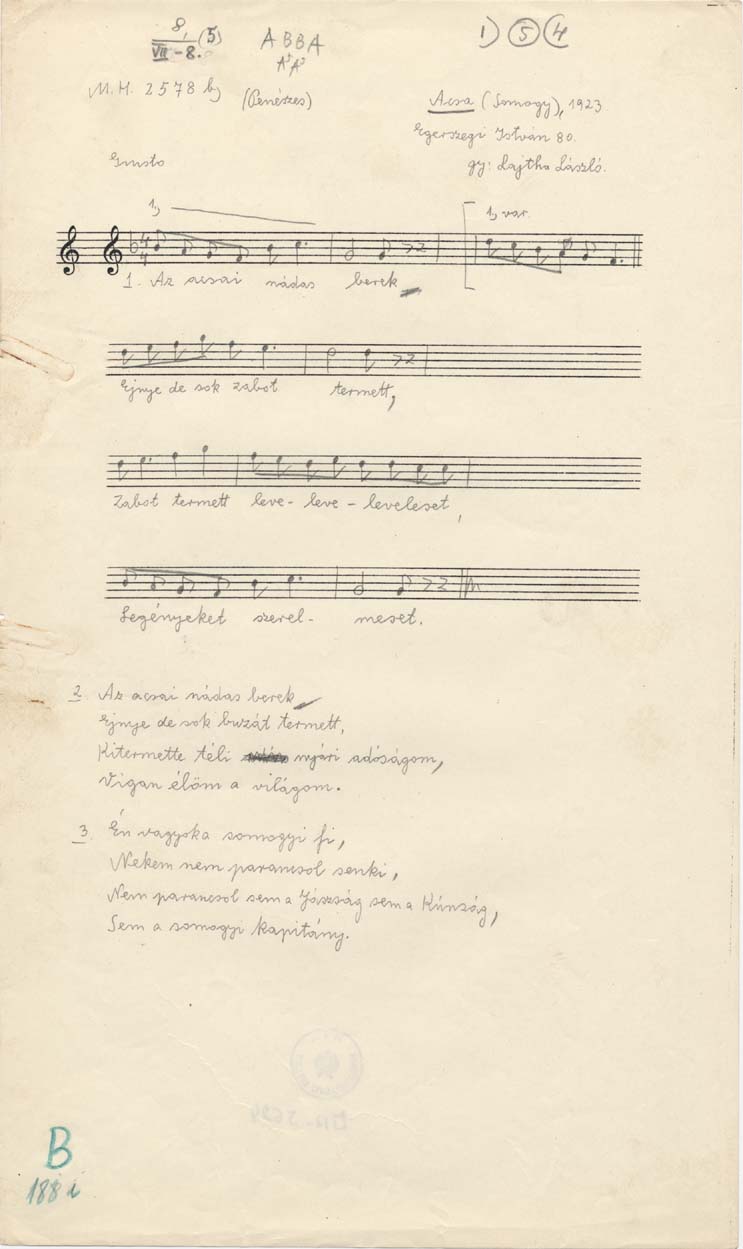 8, (5)
VII - 8.
A B B A
1) 5 4
M.H. 2578 b)
(Penészes)
Acsa (Somogy), 1923
Egerszegi István 80.
gy: Lajtha László.
Giusto
1,
1, var.
1. Az acsai nádas berek
Ejnye de sok zabot termett,
Zabot termett leve- leve- leveleset,
Legényeket szerel- meset.
2. Az acsai nádas berek
Ejnye de sok buzát termett,
Kitermette téli nyári adóságom,
Vigan élöm a világom.
3. Én vagyoka somogyi fi,
Nekem nem parancsol senki,
Nem parancsol sem a Jászság sem a Kúnság,
Sem a somogyi kapitány.
B